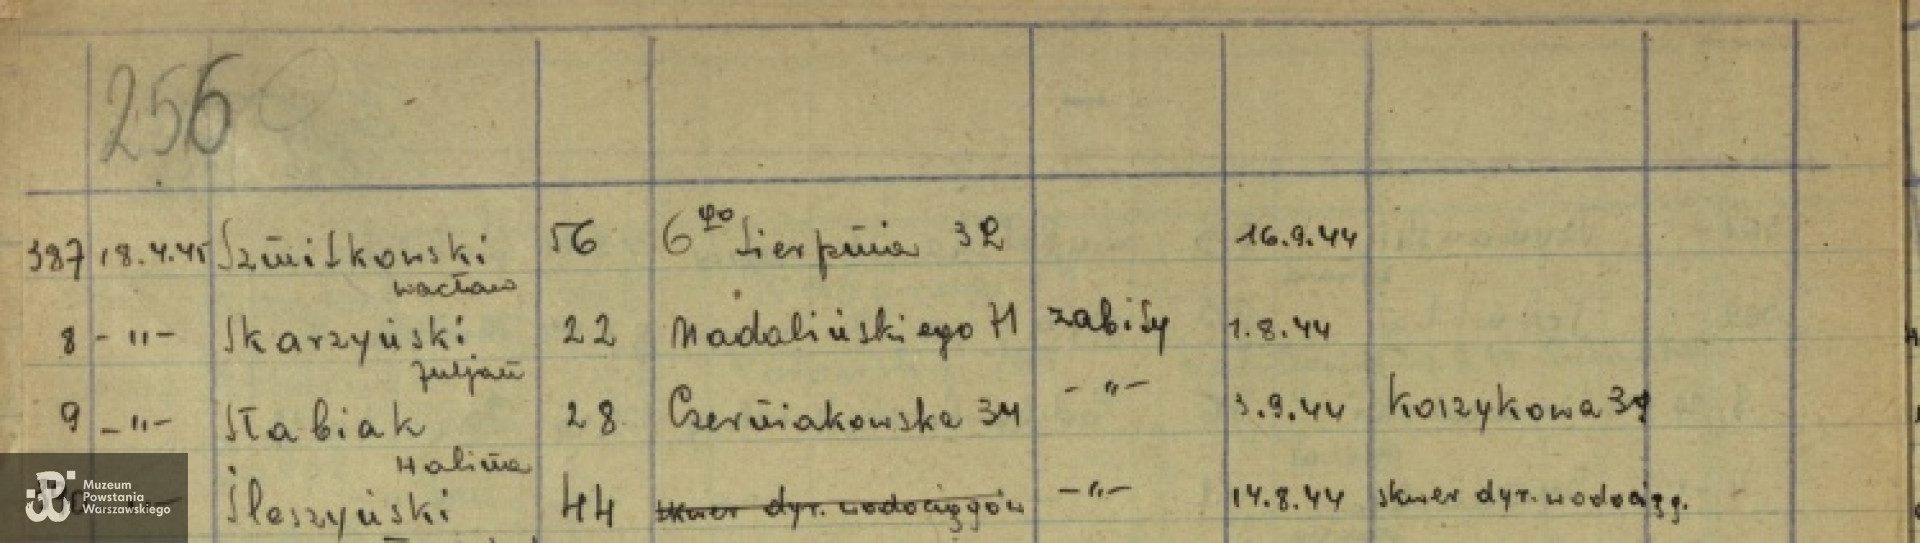 256
387 18.4.45 Szmilkowski 56 6go Sierpnia 32 16.9.44
Wacław
8 - " - Skarzyński 22 Madalińskiego 71 zabity 1.8.44
Juljan
9 - " - Słabiak 28 Czerniakowska 34 - " - 3.9.44 Koszykowa 39
Halina
Śleszyński 44 skwer dyr. wodociągów - " - 14.8.44 skwer dyr. wodociąg.
Muzeum
Powstania
Warszawskiego